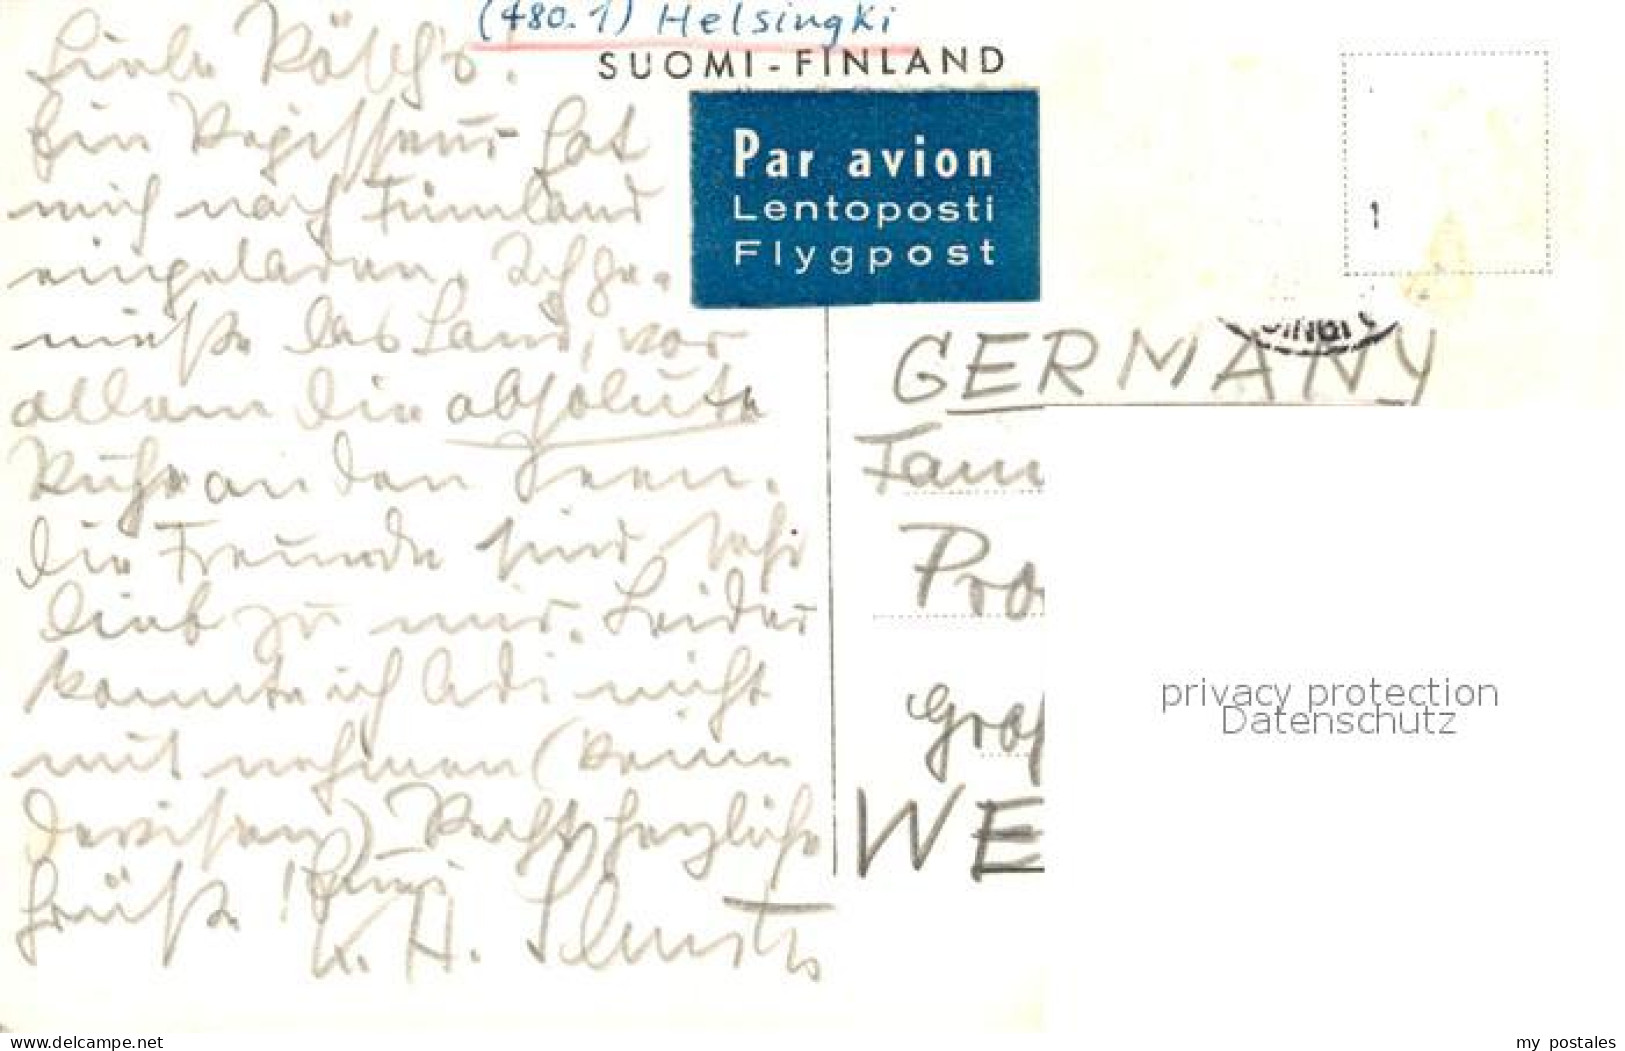 (480.1) Helsingki
SUOMI-FINLAND
Par avion
Lentoposti
Flygpost
Liebe
Ein Regisseur hat
mich nach Finnland
eingeladen. Ich ge-
nieße das Land, vor
allem die absolute
Ruhe an den Seen.
Die Freunde sind sehr
lieb zu mir. Leider
konnte ich Adi nicht
mit nehmen (keine
Devisen) Recht herzliche
Grüße!
K. H.
1
GERMANY
Fam
Pro
Graf
WE
privacy protection
Datenschutz
delcampe.net
my_postales